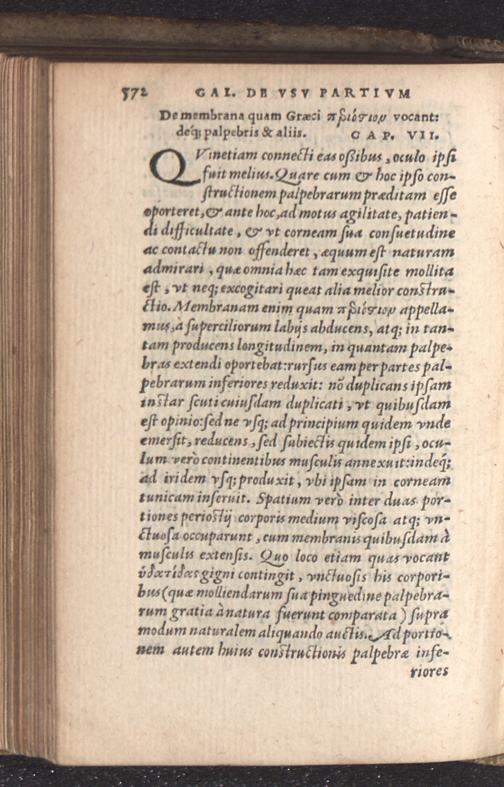 572 GAL. DE VSV PARTIVM
De membrana quam Græci πϵριόστιον vocant:
deq́; palpebris & aliis. CAP. VII.
QVinetiam connecti eas oßibus, oculo ipsi
fuit melius. Quare cum & hoc ipso con-
structionem palpebrarum præditam esse
oporteret, & ante hoc, ad motus agilitate, patien-
di difficultate, & vt corneam sua consuetudine
ac contactu non offenderet, æquum est naturam
admirari, quæ omnia hæc tam exquisite mollita
est, vt neq; excogitari queat alia melior constru-
ctio. Membranam enim quam πϵριόστιον appella-
mus, à superciliorum labijs abducens, atq; in tan-
tam producens longitudinem, in quantam palpe-
bras extendi oportebat: rursus eam per partes pal-
pebrarum inferiores reduxit: nō duplicans ipsam
instar scuti cuiusdam duplicati, vt quibusdam
est opinio: sed ne vsq; ad principium quidem vnde
emersit, reducens, sed subiectis quidem ipsi, ocu-
lum verò continentibus musculis annexuit: indeq́;
ad iridem vsq; produxit, vbi ipsam in corneam
tunicam inseruit. Spatium verò inter duas por-
tiones periostij corporis medium viscosa atq; vn-
ctuosa occuparunt, cum membranis quibusdam à
musculis extensis. Quo loco etiam quas vocant
ὑδατίδας gigni contingit, vnctuosis his corpori-
bus (quæ molliendarum sua pinguedine palpebra-
rum gratia à natura fuerunt comparata) supra
modum naturalem aliquando auctis. Ad portio-
nem autem huius constructionis palpebræ infe-
riores